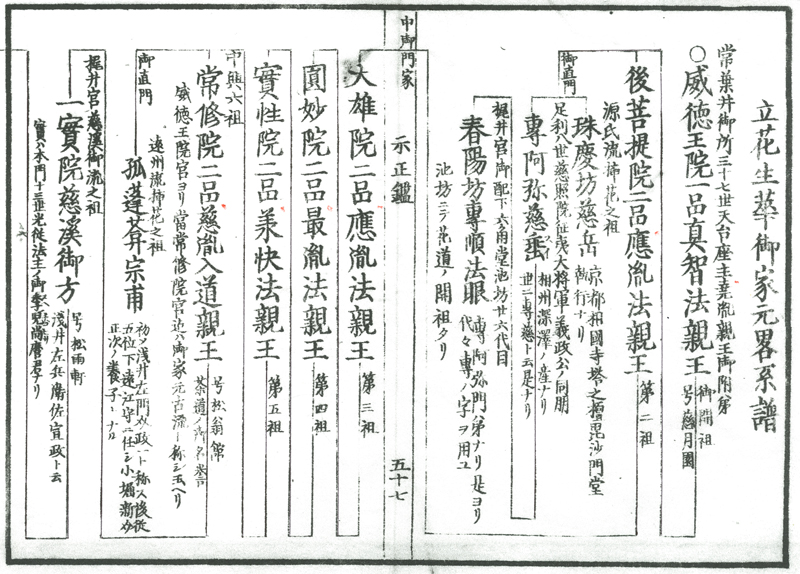 立花生華御家元畧系譜
常葉井御所三十七世天台座主堯胤親王御附弟
○威徳王院一品真智法親王 御開祖 号慈月園
後菩提院二品應胤法親王 第二祖
源氏流挿花之祖
珠慶坊慈岳 京都相國寺塔之檀毘沙門堂
執行ナリ
御直門
足利八世慈照院征夷大将軍義政公ノ同朋
專阿弥慈垂 相州深澤ノ産ナリ
世ニ專慈ト云是ナリ
梶井宮御配下六角堂池坊廿六代目
春陽坊專順法眼 專阿弥門弟ナリ是ヨリ
代々專ノ字ヲ用ユ
池坊ニテ花道ノ開祖タリ
中御門家
示正鑑
五十七
大雄院二品應胤法親王 第三祖
圓妙院二品最胤法親王 第四祖
實性院二品承快法親王 第五祖
中興六祖
常修院二品慈胤入道親王 号松翁
茶道ノ御名
威徳王院宮ヨリ當常修院宮迠ハ御家元古流ト称シ玉ヘリ
御直門
遠州流挿花之祖
孤蓬菴宗甫 初メ浅井左門政一ト称ス後從
五位下遠江守ニ任シ小堀新助
正次ノ養子トナル
梶井宮慈溪御流之祖
一實院慈溪御方 号松雨軒
浅井左兵衛佐宣政ト云
實ハ本門十三世光從法主ノ御季児尚麿君ナリ